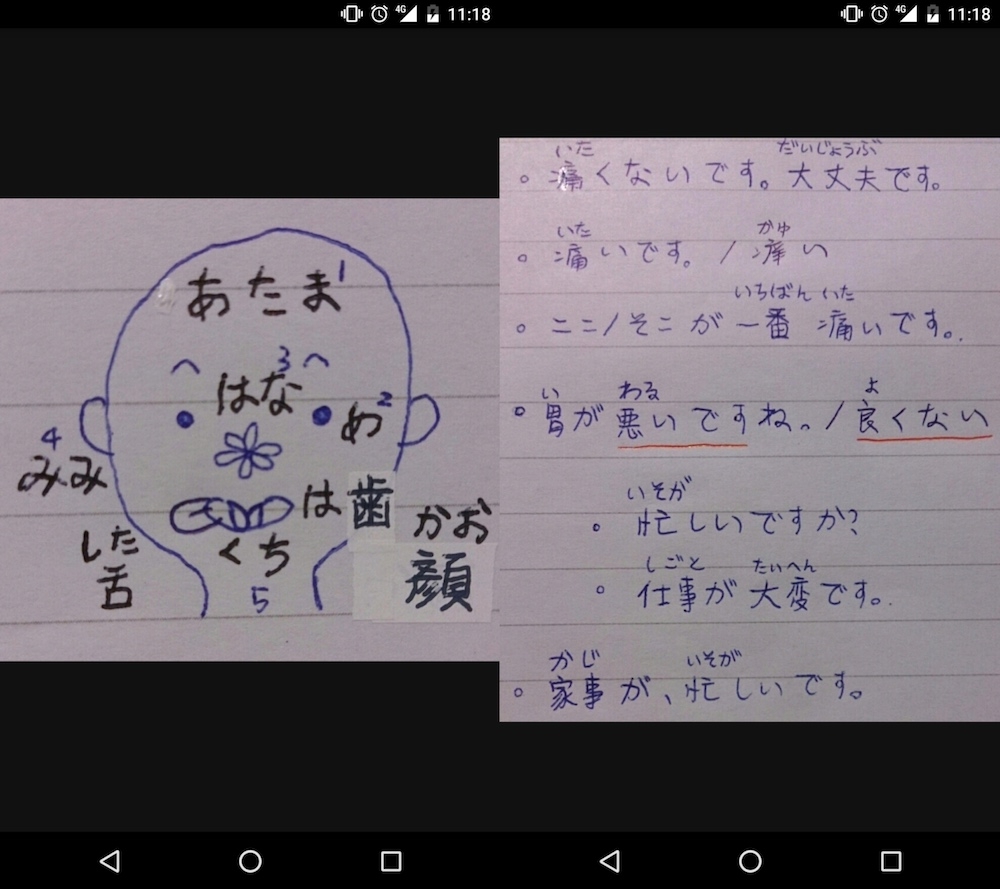 4G 11:18
4G 11:18
あたま1
はな3
め2
4
みみ
は歯
かお
顔
した
舌
くち
5
いた だいじょうぶ
。痛くないです。大丈夫です。
いた かゆ
。痛いです。/痒い
いちばん いた
。ここ/そこが一番 痛いです。
い わる よ
。胃が悪いですね。/良くない
いそが
。忙しいですか?
しごと たいへん
。仕事が大変です。
かじ いそが
。家事が、忙しいです。